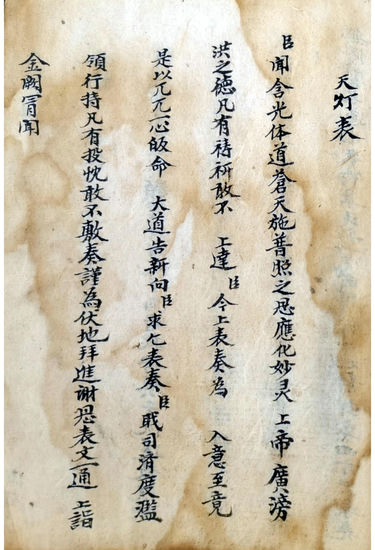 天灯表
臣聞含光体道蒼天施普照之恩應化妙灵上帝廣滂
洪之德凡有祷祈敢不 上達臣今上表奏為 入意至竟
是以兀兀一心皈命 大道告新向臣求乞表奏臣戝司濟度濫
領行持凡有投忱敢不敷奏謹為伏地拜進谢恩表文一通 上詣
金闕冐聞